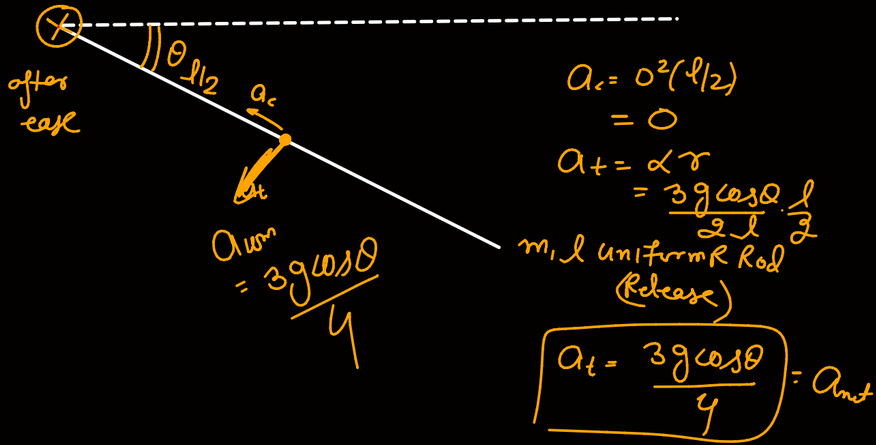 θ
l/2
after
ease
a_c
a_t
a_com
= 3g cosθ / 4
a_c = 0²(l/2)
= 0
a_t = α r
= 3g cosθ / 2l · l/2
m, l uniform R Rod
(Release)
a_t = 3g cosθ / 4 = a_net